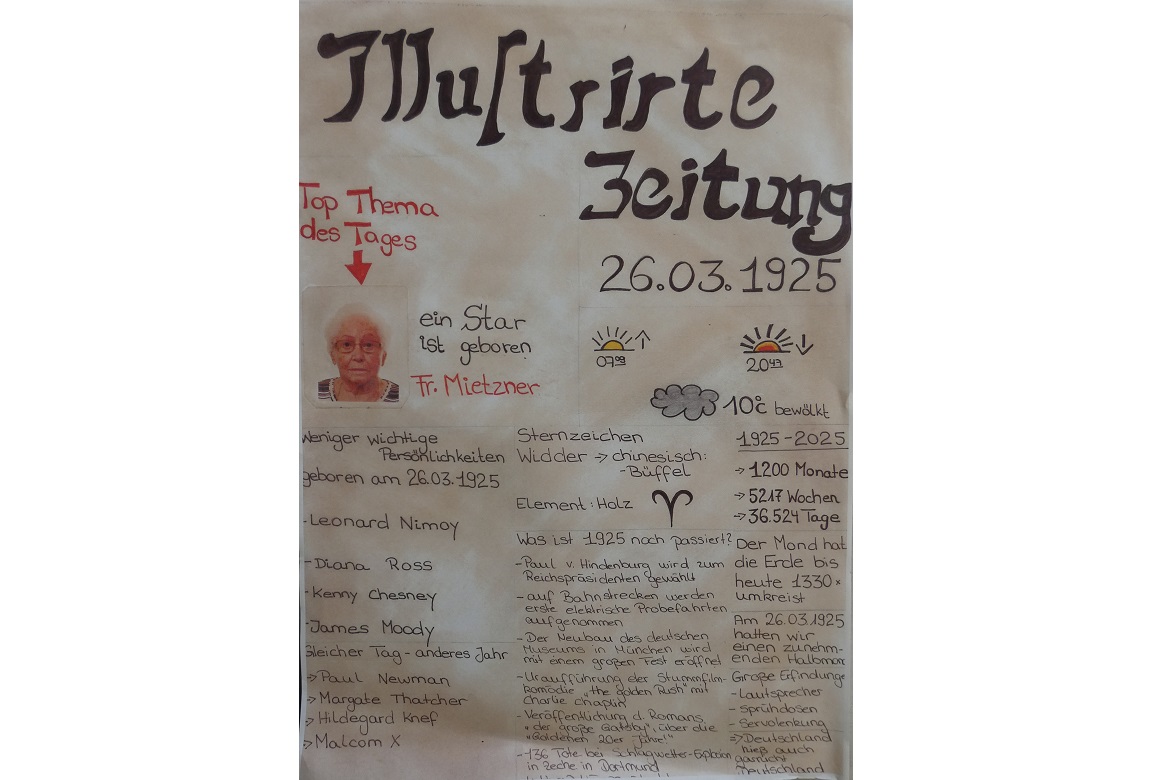 Illustrirte
Zeitung
26.03.1925
Top Thema
des Tages
ein Star
ist geboren
Fr. Mietzner
07⁰⁹
20⁴⁷
10°C bewölkt
Weniger wichtige
Persönlichkeiten
geboren am 26.03.1925
-Leonard Nimoy
-Diana Ross
-Kenny Chesney
-James Moody
Gleicher Tag - anderes Jahr
→Paul Newman
→Margate Thatcher
→Hildegard Knef
→Malcom X
Sternzeichen
Widder → chinesisch:
-Büffel
Element: Holz
Was ist 1925 noch passiert?
-Paul v. Hindenburg wird zum
Reichspräsidenten gewählt
-auf Bahnstrecken werden
erste elektrische Probefahrten
aufgenommen
-Der Neubau des deutschen
Museums in München wird
mit einem großen Fest eröffnet
-Uraufführung der Stummfilm-
komödie „the golden Rush" mit
Charlie Chaplin
-Veröffentlichung d. Romans
„der große Gatsby", über die
"Goldenen 20er Jahre!"
-136 Tote bei Schlagwetter-Explosion
in Zeche in Dortmund
1925-2025
→1200 Monate
→5217 Wochen
→36.524 Tage
Der Mond hat
die Erde bis
heute 1330x
umkreist
Am 26.03.1925
hatten wir
einen zunehm-
enden Halbmon
Große Erfindunge
-Lautsprecher
-Sprühdosen
-Servolenkung
⇒Deutschland
hieß auch
garnicht
Deutschland